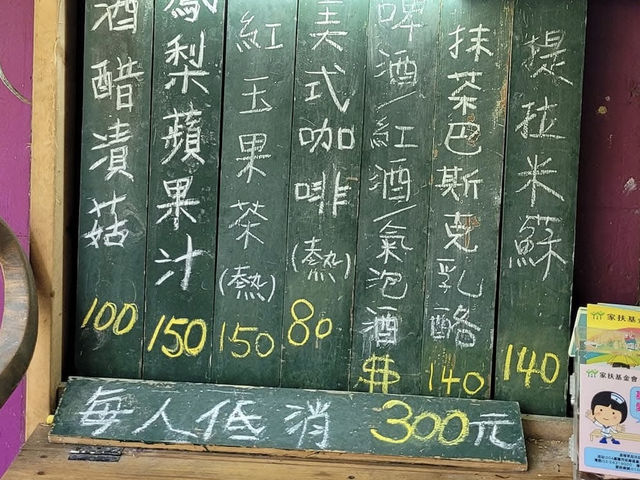 提拉米蘇 140
抹茶巴斯克乳酪 140
啤酒/紅酒/氣泡酒 $
美式咖啡(熱) 80
紅玉果茶(熱) 150
鳳梨蘋果汁 150
酒醋漬菇 100
每人低消 300元
家扶基金會
家扶基金會